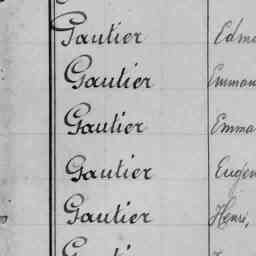 Gautier Edm
Gautier Emman
Gautier Emma
Gautier Eugèn
Gautier Henri,